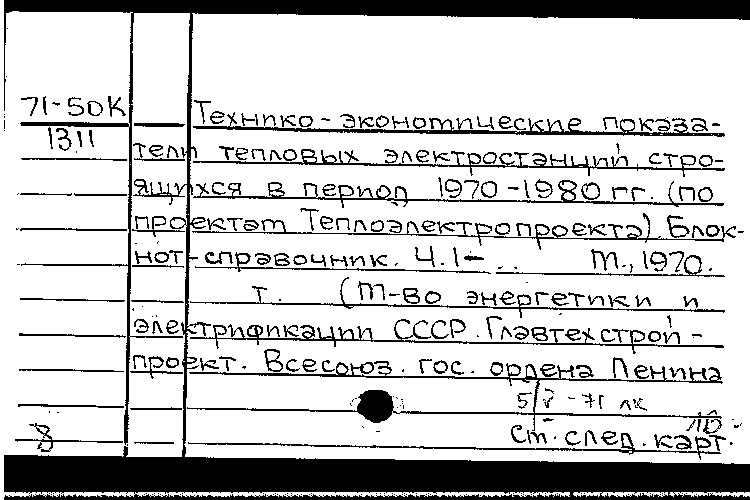 71-50К
1311
Технико-экономические показа-
тели тепловых электростанций, стро-
ящихся в период 1970-1980 гг. (по
проектам Теплоэлектропроекта) Блок-
нот-справочник. Ч.1- .. М., 1970.
т. (М-во энергетики и
электрификации СССР. Главтехстрой-
проект. Всесоюз. гос. ордена Ленина
5/V-71 лк
См. след. карт.
8